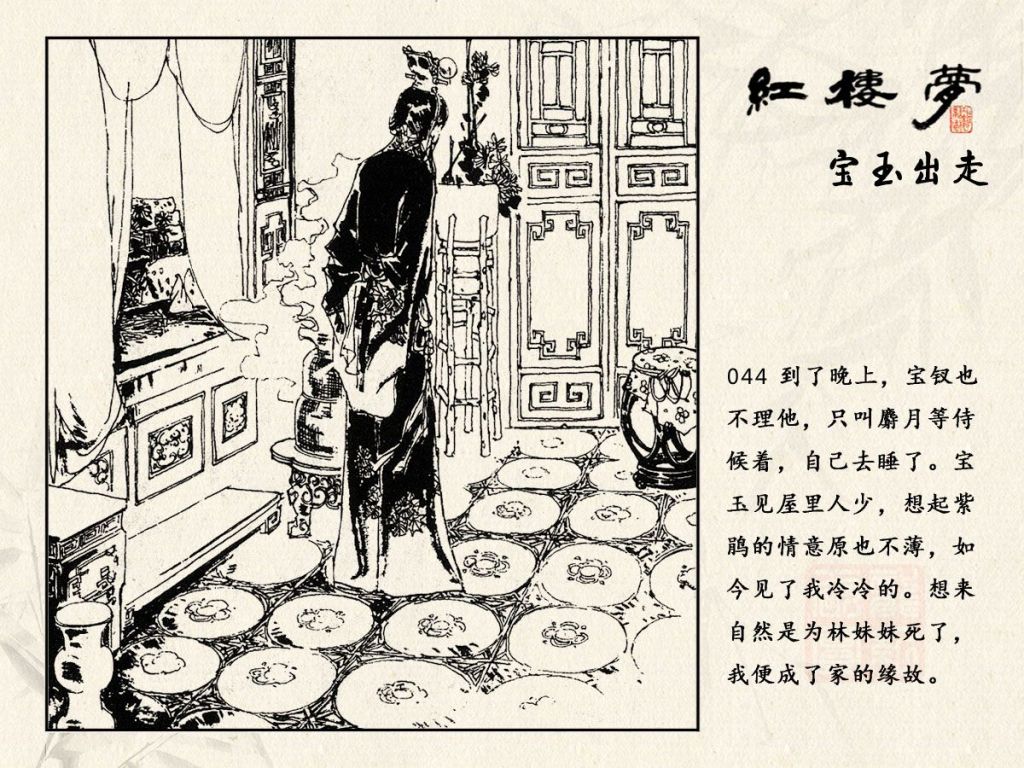 紅樓夢
宝玉出走
044 到了晚上，宝钗也
不理他，只叫麝月等侍
候着，自己去睡了。宝
玉见屋里人少，想起紫
鹃的情意原也不薄，如
今见了我冷冷的。想来
自然是为林妹妹死了，
我便成了家的缘故。